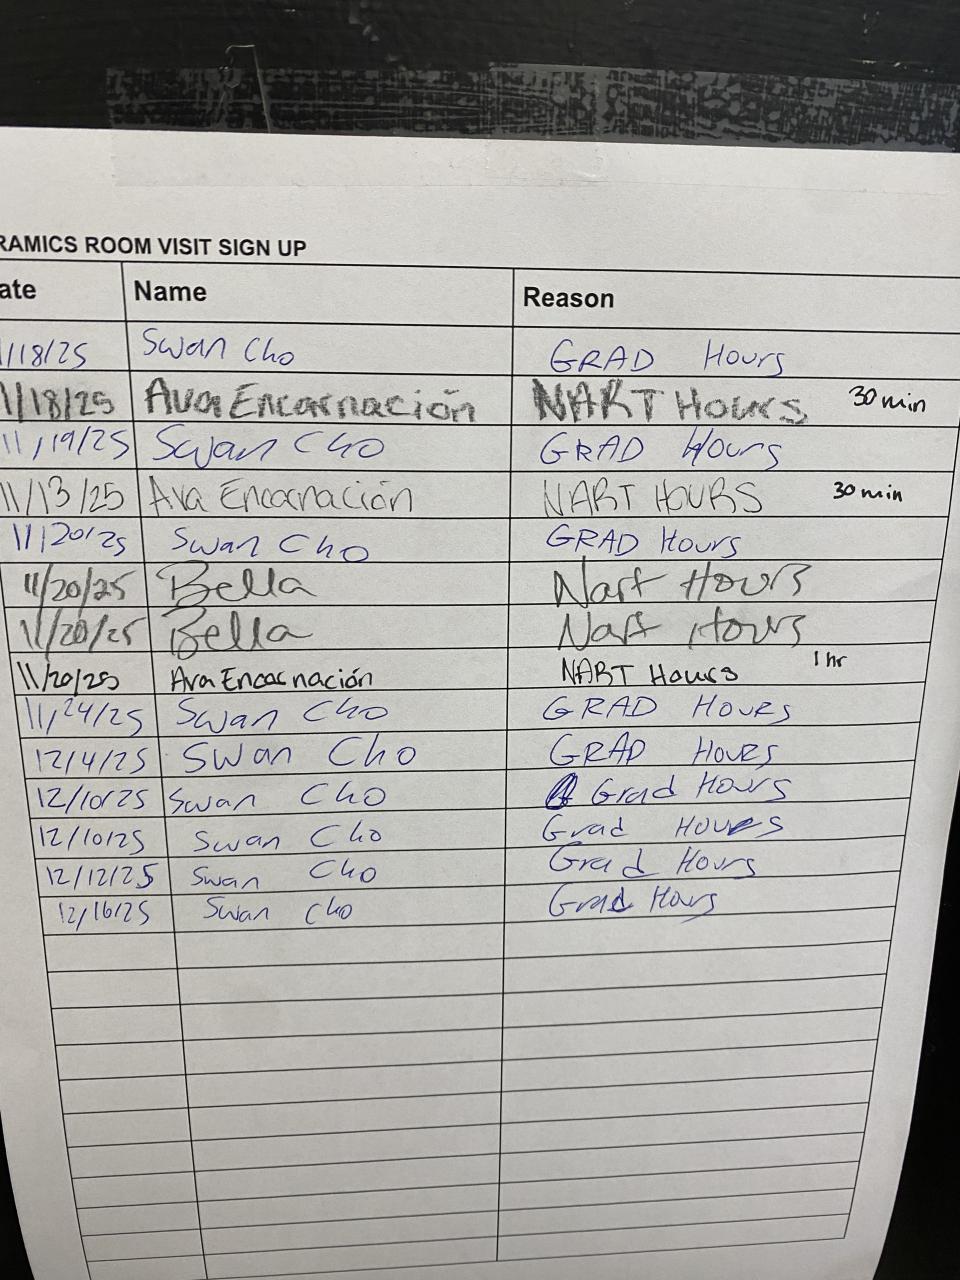 RAMICS ROOM VISIT SIGN UP
ate Name Reason
1/18/25 Swan Cho GRAD Hours
1/18/25 Ava Encarnación NART Hours 30 min
11/19/25 Swan Cho GRAD Hours
11/13/25 Ava Encarnación NART HOURS 30 min
11/20/25 Swan Cho GRAD Hours
11/20/25 Bella Nart Hours
11/20/25 Bella Nart Hours
11/20/25 Ava Encarnación NART Hours 1 hr
11/24/25 Swan Cho GRAD HOURS
12/4/25 Swan Cho GRAD HOURS
12/10/25 Swan Cho Grad Hours
12/10/25 Swan Cho Grad HOURS
12/12/25 Swan Cho Grad Hours
12/16/25 Swan Cho Grad Hours